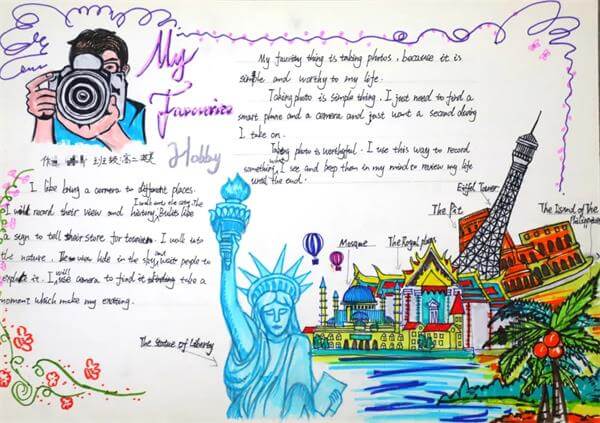 My
Favourite
Hobby
My favoritey thing is taking photos, because it is
simple and worthy to my life.
Taking photo is simple thing. I just need to find a
smart phone and a camera and just want a second doing
I take on.
Taking photo is worthyful. I use this way to record
something I see and keep them in my mind to review my life
until the end.
作者 班级:高二
I like bring a camera to different places.
I will record their view and history,
a sign to tell their store for I walk into
the nature. The view hide in the sky, and want people to
explore it. I will use camera to find it take a
moment which make my exciting.
Eiffel Tower
The Pit
The Island of The
Philippines
Mosque
The Royal plac
The Statue of Liberty